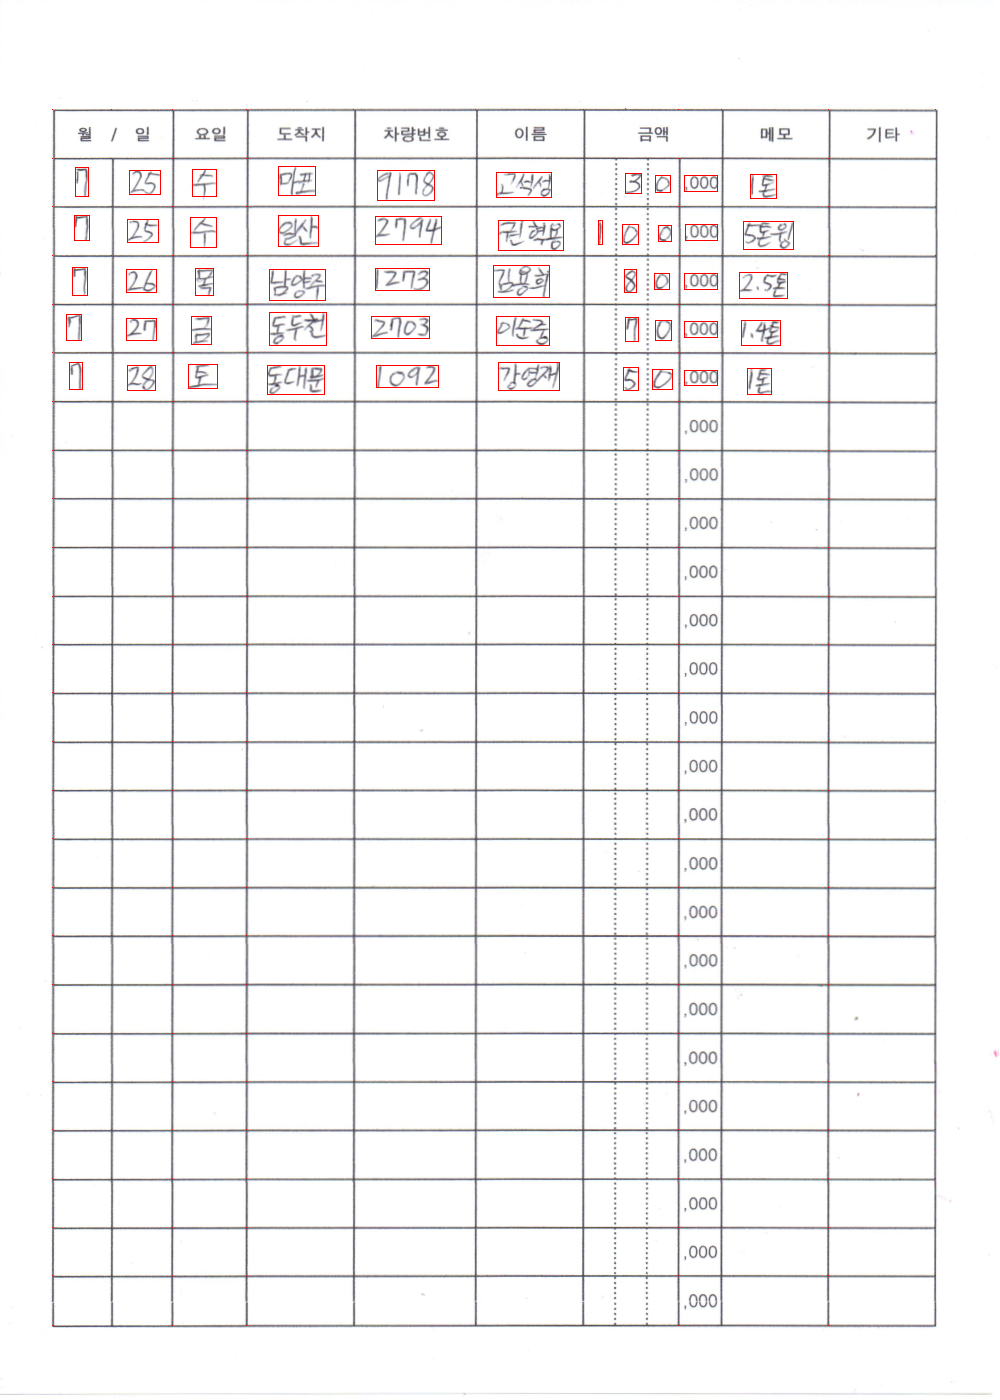 월 / 일 요일 도착지 차량번호 이름 금액 메모 기타
7 25 수 마포 9178 고석성 3 0 ,000 1톤
7 25 수 일산 2794 권혁용 1 0 0 ,000 5톤윙
7 26 목 남양주 1273 김용희 8 0 ,000 2.5톤
7 27 금 동두천 2703 이순중 7 0 ,000 1.4톤
7 28 토 동대문 1092 강영재 5 0 ,000 1톤
,000
,000
,000
,000
,000
,000
,000
,000
,000
,000
,000
,000
,000
,000
,000
,000
,000
,000
,000